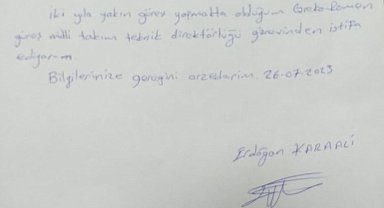 iki yıla yakın görev yapmakta olduğum Greko-Romen
güreş milli takım teknik direktörlüğü görevinden istifa
ediyorum.
Bilgilerinize gereğini arzederim. 26-07-2023
Erdoğan KARAALİ